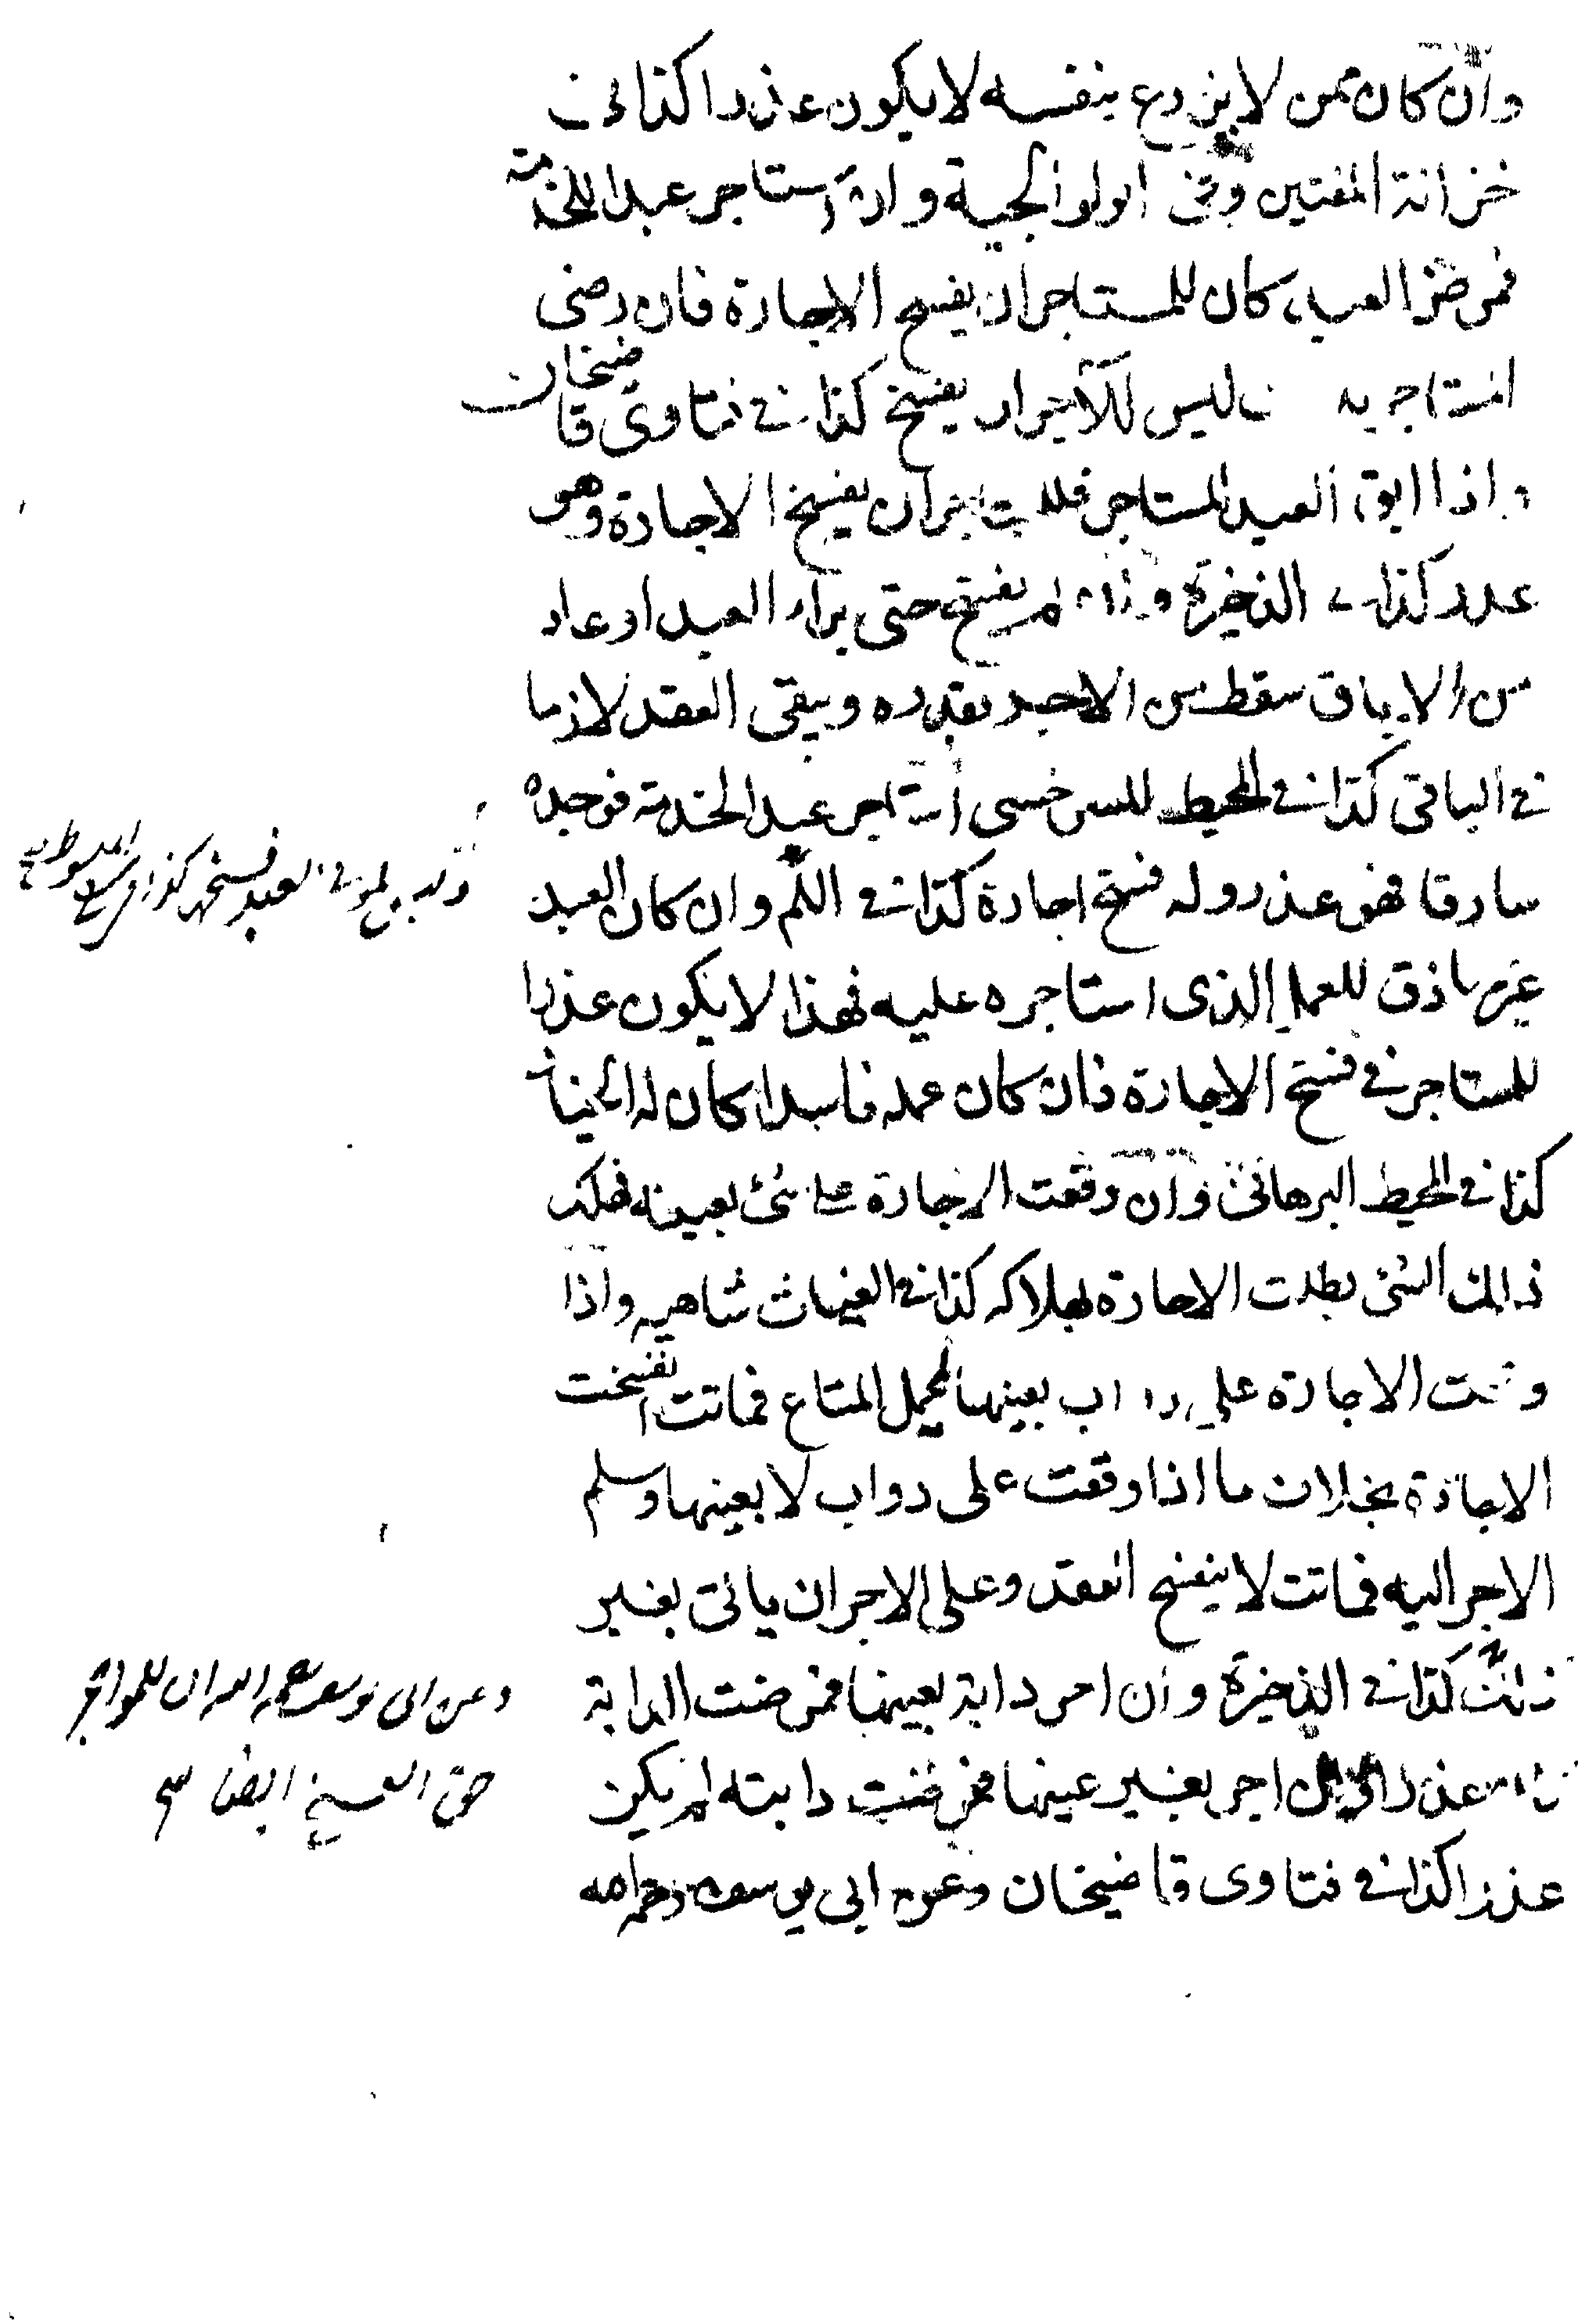 وان كان ممن لا يزرع بنفسه لا يكون عذرا كذا في
خزانة المفتين وفي الولوالجية وان استاجر عبدا للخدمة
فمرض العبد كان للمستاجر ان يفسخ الاجارة فان رضى
المستاجر به فليس للآجر ان يفسخ كذا في فتاوى قاضيخان
واذا ابق العبد المستاجر فللمستاجر ان يفسخ الاجارة وهو
عذر كذا في الذخيرة وان لم يفسخ حتى براء العبد او عاد
من الاباق سقط من الاجر بقدره ويبقى العقد لازما
في الباقي كذا في المحيط للسرخسى استاجر عبدا لخدمته فوجده
سارقا فهو عذر وله فسخ اجارة كذا في وان كان العبد
غير حاذق للعمل الذى استاجره عليه فهذا لا يكون عذرا
للمستاجر في فسخ الاجارة فان كان عمله فاسدا كان له الخيار
كذا في المحيط البرهاني وان وقعت الاجارة على شئ بعينه فهلك
ذالك الشئ بطلت الاجارة بهلاكه كذا في الغياث شاهيه واذا
وقعت الاجارة على دواب بعينها لحمل المتاع فماتت انفسخت
الاجارة بخلاف ما اذا وقعت على دواب لا بعينها وسلم
الاجر اليه فماتت لا ينفسخ العقد وعلى الاجر ان ياتى بغير
ذالك كذا في الذخيرة وان اجر دابة بعينها فمرضت الدابة
كان عذرا وان اجر بغير عينها فمرضت دابته لم يكن
عذرا كذا في فتاوى قاضيخان وعن ابى يوسف رحمه الله
العبد كذا في
وعن ابى يوسف رحمه الله ان للمواجر
حق الفسخ ايضا صح